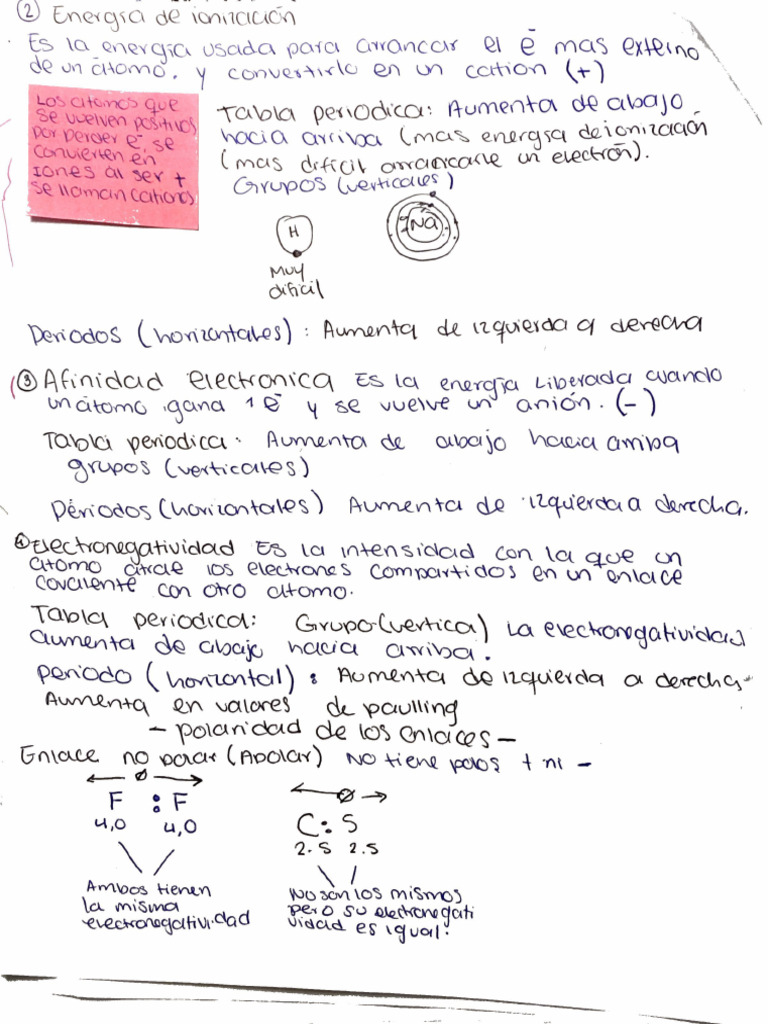 ② Energía de ionización
Es la energía usada para arrancar el e⁻ mas externo
de un átomo. y convertirlo en un catión (+)
Los átomos que
se vuelven positivos
por perder e⁻, se
convierten en
iones al ser +
se llaman cationes
Tabla periodica: Aumenta de abajo
hacia arriba (mas energía de ionización
(mas difícil arrancarle un electrón).
Grupos (verticales)
H
Na
Muy
difícil
Periodos (horizontales): Aumenta de izquierda a derecha
③ Afinidad electronica Es la energía liberada cuando
un átomo gana 1 e⁻ y se vuelve un anión. (-)
Tabla periodica: Aumenta de abajo hacia arriba
grupos (verticales)
Périodos (horizontales) Aumenta de izquierda a derecha.
④ Electronegatividad Es la intensidad con la que un
átomo atrae los electrones compartidos en un enlace
covalente con otro atomo.
Tabla periodica: Grupo (vertica) La electronegatividad
aumenta de abajo hacia arriba.
periodo (horizontal): Aumenta de izquierda a derecha
Aumenta en valores de paulling
- polaridad de los enlaces -
Enlace no polar (Apolar) No tiene polos + ni -
F : F
4,0 4,0
C : S
2.5 2.5
Ambos tienen
la misma
electronegatividad
No son los mismos
pero su electronegati
vidad es igual.